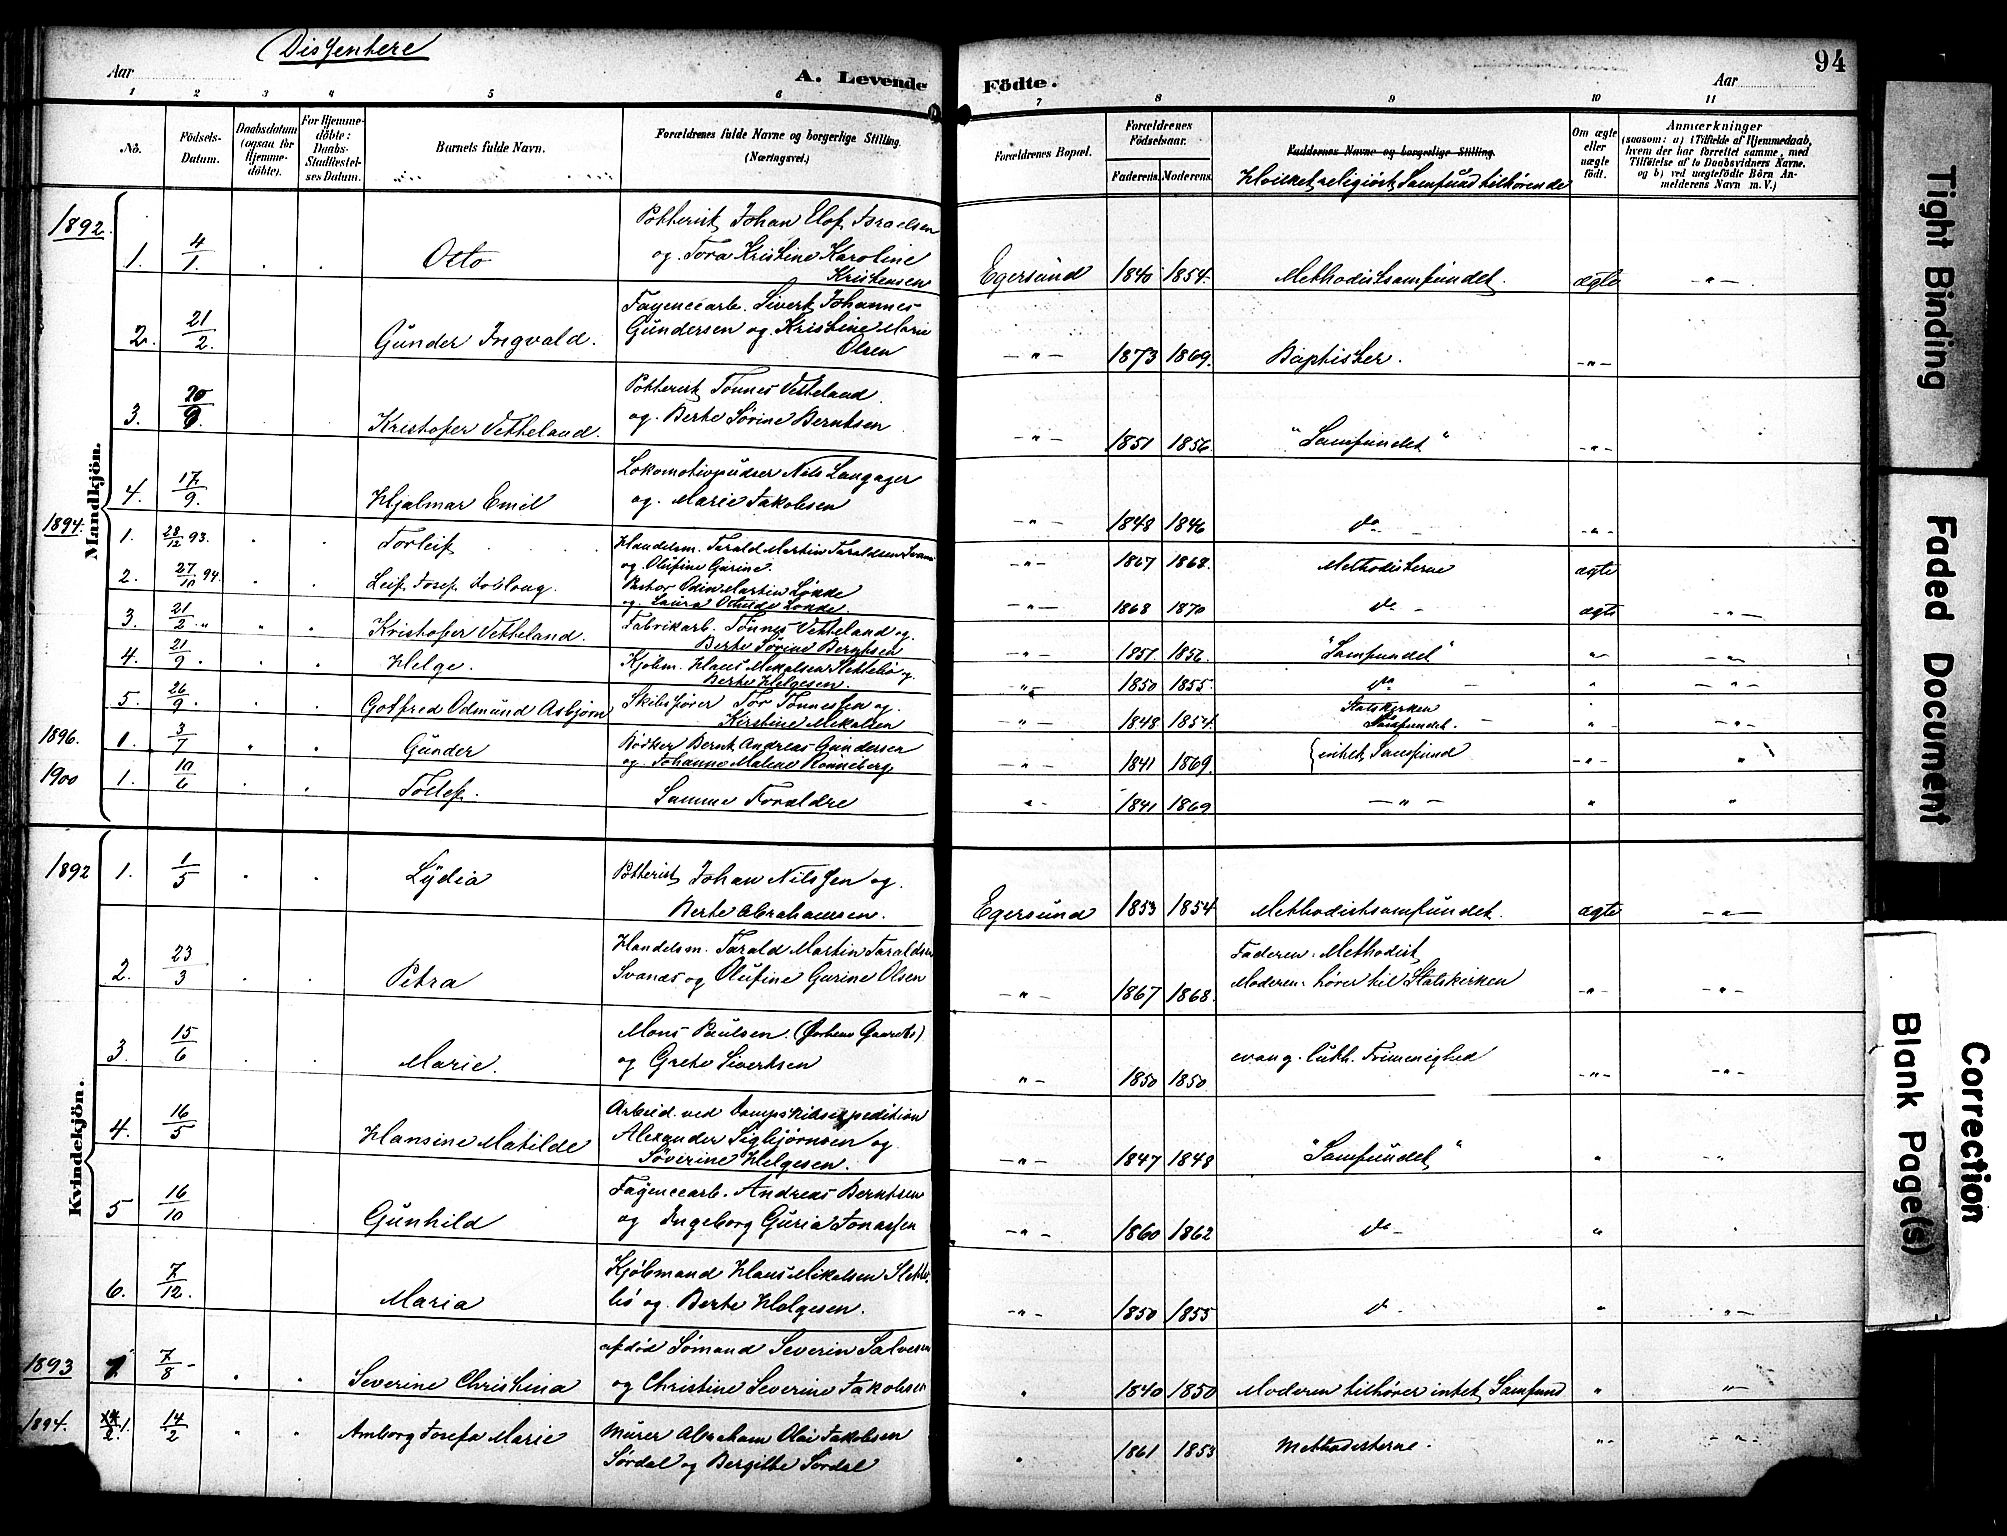 Dissentere
94
Aar
A. Levende Födte.
Aar
1 2 3 4 5 6 7 8 9 10 11
No. Födsels-Datum. Daabsdatum (ogsaa for Hjemmedöbte). For Hjemmedöbte: Daabs-Stadfæstelses Datum. Barnets fulde Navn. Forældrenes fulde Navne og borgerlige Stilling. (Næringsvei.) Forældrenes Bopæl. Forældrenes Födselsaar. Faderens. Moderens. Faddernes Navne og borgerlige Stilling. Om ægte eller uægte födt. Anmærkninger (saasom: a) i Tilfælde af Hjemmedaab, hvem der har forrettet samme, med Tilföielse af to Daabsvidners Navne, og b) ved uægtefödte Börn Anmelderens Navn m. V.)
Hvilket religiöst Samfund tilhörende
Mandkjön.
1892.
1. 4/1. Otto Potterist Johan Elof Israelsen
og Tora Kristine Karoline
Kristensen Egersund 1840 1854. Methodistsamfundet. ægte - " -
2. 21/2. Gunder Ingvald. Fayencearb. Sivert Johannes
Gundersen og Kristine Marie
Olsen - " - 1873 1869. Baptister. - " -
3. 20/9. Kristofer Vetteland. Potterist Tönnes Vetteland
og Berte Sörine Berntsen - " - 1851 1856. "Samfundet" - " -
4. 17/9. Hjalmar Emil Lokomotivpudser Nils Langager
og Marie Jakobsen - " - 1848 1846 do - - " -
1894.
1. 28/12 93. Torleif Handelsm. Tarald Martin Taraldsen Svanes
og Olufine Gurine. - " - 1867 1868. Methodisterne ægte
2. 27/10 94. Leif Josef Pastor Odin Martin Lökke
og Laura Lökke. - " - 1868 1870 do - ægte - " -
3. 21/2 " Kristofer Vetteland. Fabrikarb. Tönnes Vetteland og
Berte Sörine Berntsen - " - 1851. 1856. "Samfundet" " - " -
4. 21/9. Helge. Kjöbm. Hans Mikalsen Slettebö og
Berte Helgesen. - " - 1850 1855. do - " - " -
5. 26/9. Gotfred Odmund Asbjörn Skibsförer Tor Tönnesen og
Kirstine Mikalsen - " - 1848 1854. Statskirken
Samfundet. - " - " -
1896.
1. 3/7 Gunder Bödker Bernt Andreas Gundersen
og Johanne Malene Rönneberg - " - 1841 1869. intet Samfund - " - "
1900
1. 10/6 Tollef. Samme Forældre " - 1841 1869 - " - " "
Kvindekjön.
1892
1. 1/5 Lydia Potterist Johan Nilssen og
Berte Abrahamsen. Egersund 1853 1854 Methodistsamfundet. ægte - " -
2. 23/3 Petra Handelsm. Tarald Martin Taraldsen
Svanes og Olufine Gurine Olsen - " - 1867 1868. Faderen: Methodist
Moderen: hörer til Statskirken - " - - " -
3. 15/6 Marie. Mons Paulsen
og Grete Sivertsen " - 1850 1850 evang. luth. Frimenighed - " - - " -
4. 16/5 Hansine Matilde Arbeid. ved Dampskibsexpedition
Alexander Sigbjörnsen og
Söverine Helgesen. - " - 1847 1848 "Samfundet" " "
5 16/10 Gunhild Fayencearb. Andreas Berntsen
og Ingeborg Guria Jonassen - " - 1860 1862 do - "
6. 7/12. Maria Kjöbmand Hans Mikalsen Slette-
bö og Berte Helgesen. - " - 1850 1855 do - " " -
1893
1 7/8 - Severine Christina afdöd Sömand Severin Salvesen
og Christine Severine Jakobsen " 1840 1850 Moderen tilhörer intet Samfund " " -
1894.
1. 14/2 Amborg Josefa Marie Murer Abraham Olai Jakobsen
Sördal og Bergitte Sördal " 1861 1853 Methodisterne. " - - " -
Tight Binding
Faded Document
Correction
Blank Page(s)